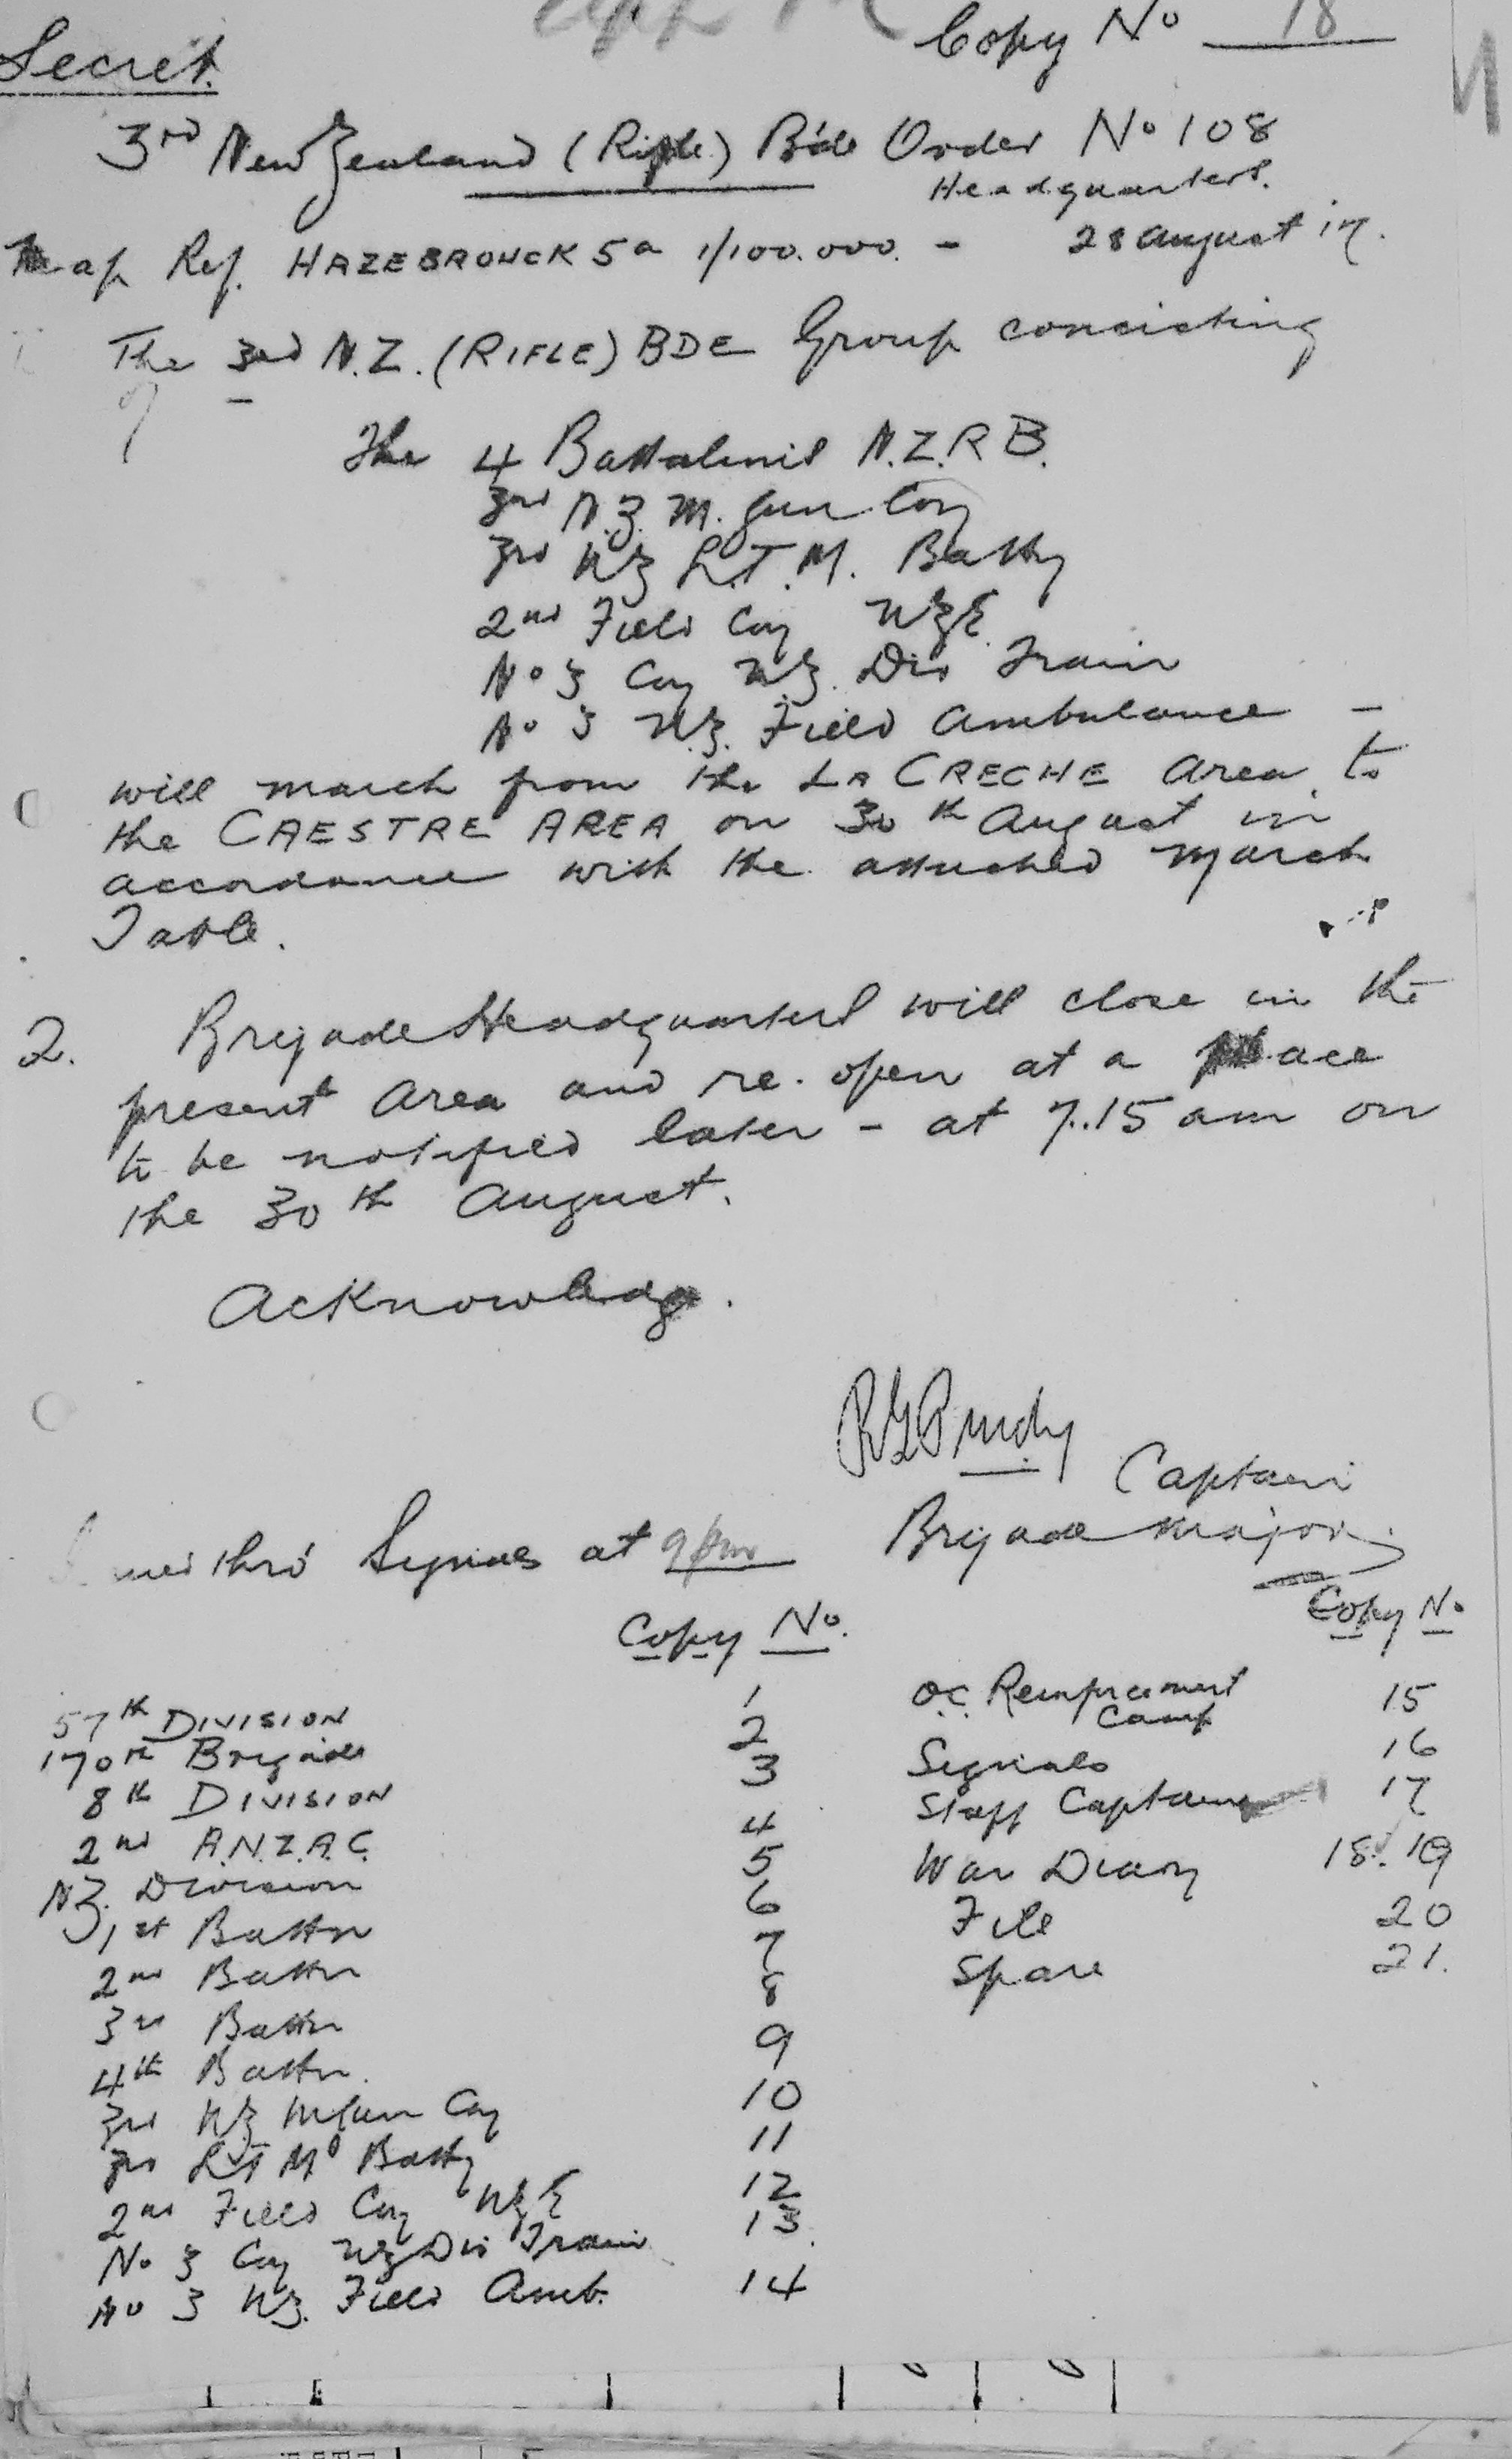 Copy No 18
Secret.
3rd New Zealand (Rifle) Bde Order No 108
Headquarters.
Map Ref. HAZEBROUCK 5a 1/100.000. - 28 August 17.
The 3rd N.Z. (RIFLE) BDE Group consisting
of
The 4 Battalions N.Z.R.B.
3rd N.Z. M. Gun Coy
3rd NZ L.T.M. Batty
2nd Field Coy NZE.
No 3 Coy N.Z. Div Train
No 3 N.Z. Field Ambulance -
will march from the LA CRECHE Area to
the CAESTRE AREA on 30th August in
accordance with the attached March
Table.
2. Brigade Headquarters will close in the
present Area and re.open at a place
to be notified later - at 7.15 am on
the 30th August.
Acknowledge.
Captain
Brigade Major.
thro' Signals at 9 pm
Copy No. Copy No
57th DIVISION 1 O.C. Reinforcement Camp 15
170th Brigade 2 Signals 16
8th DIVISION 3 Staff Captain 17
2nd A.N.Z.A.C. 4 War Diary 18.19
NZ. Division 5 File 20
1st Battn 6 Spare 21.
2nd Battn 7
3rd Battn 8
4th Battn. 9
3rd NZ M Gun Coy 10
3rd LTM Batty 11
2nd Field Coy NZE 12
No 3 Coy NZ Div Train 13.
No 3 NZ. Field Amb. 14